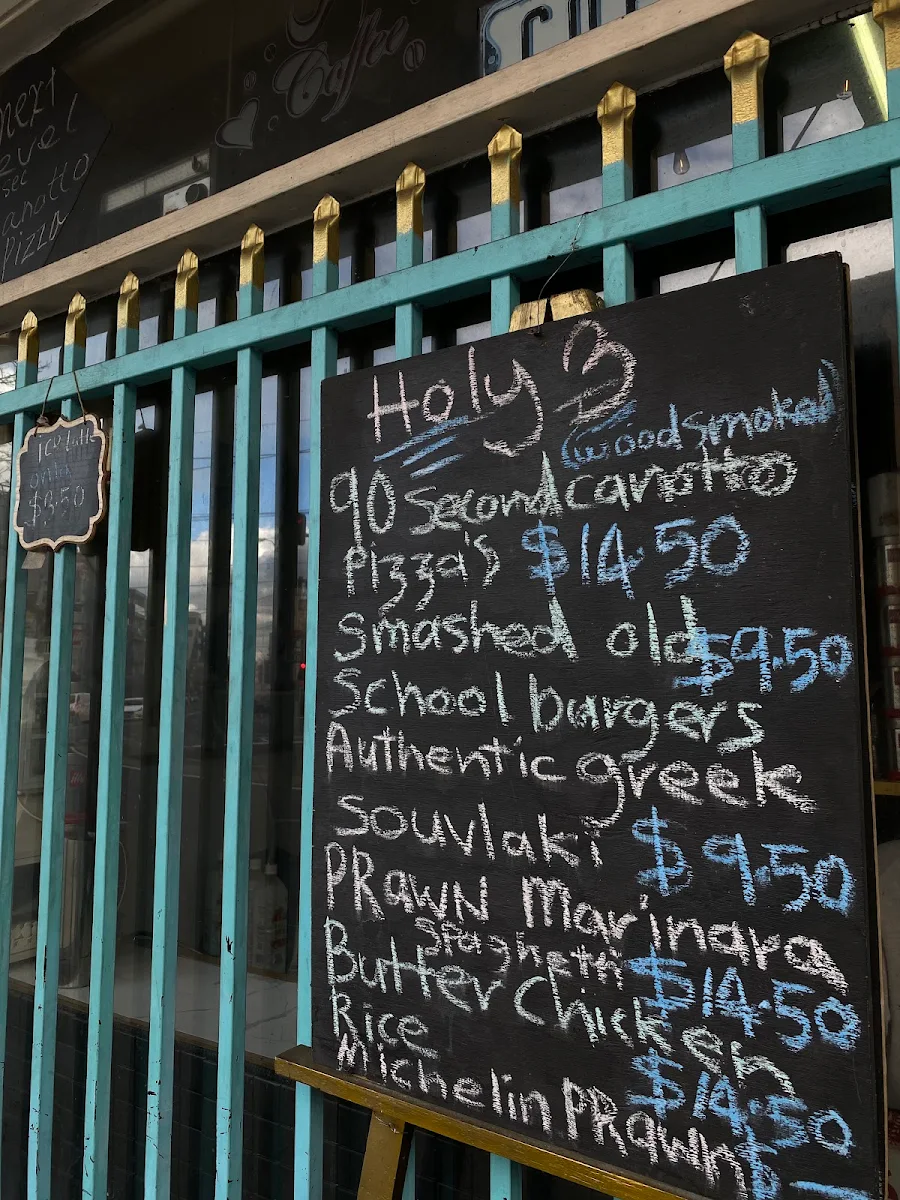 Coffee
next
level
see
canotto
pizza
$3.50
Holy B
(woodsmoked)
90 second canotto
pizza's $14.50
smashed old $9.50
School burgers
Authentic greek
souvlaki $9.50
PRawN Marinara
Spaghetti $14.50
Butter Chicken
Rice $14.50
Michelin PRawn $